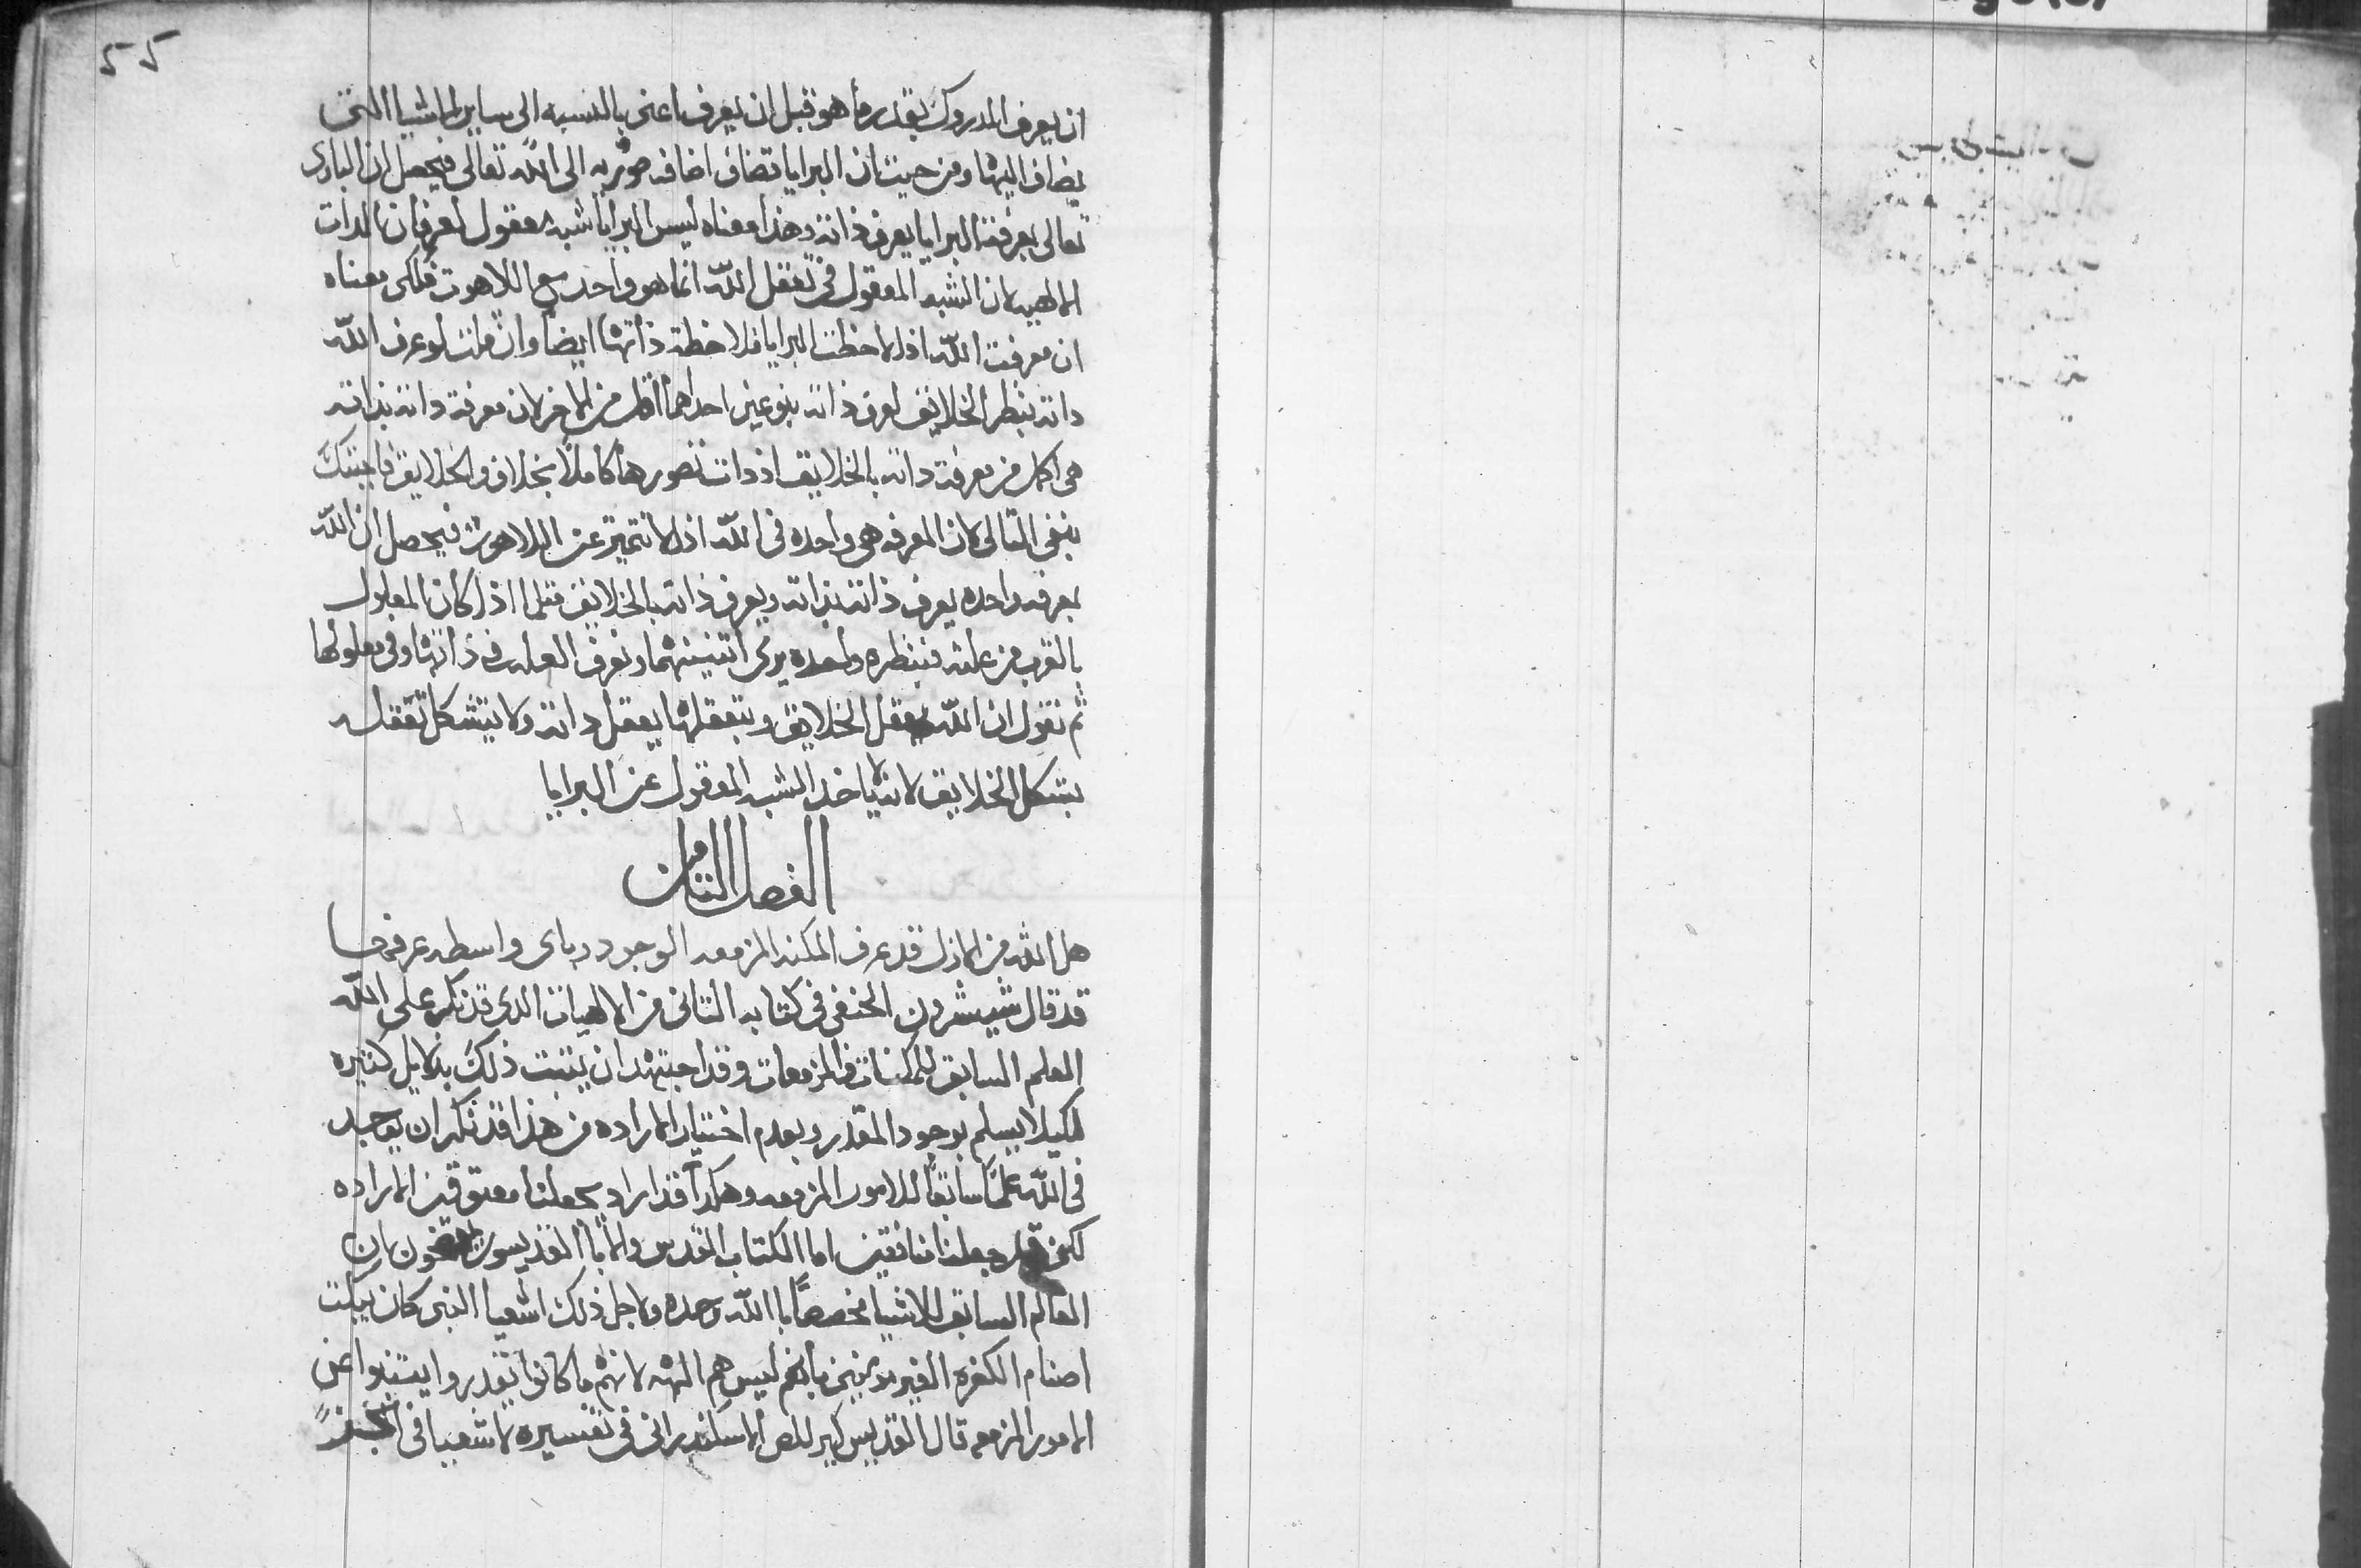 ان يعرف المدروك بقدر ما هو قبل ان يعرف اعنى بالنسبه الى ساير الاشيا التى
يضاف اليها ومن حيث ان البرايا تضاف اضافه ضوريه الى الله تعالى فيحصل ان البارى
تعالى بمعرفته البرايا يعرف ذاته وهذا معناه ليس البرايا شبه معقول لعرفان الدات
الالهيه لان الشبه المعقول فى تعقل الله انما هو واحد مع اللاهوت فلكى معناه
ان معرفت الله اذا لاحظت البرايا فلاحظة ذاتها ايضا وان قلت لو عرف الله
داته بنظر الخلايق لعرف ذاته بنوعين احداهما اكمل من الاخر لان معرفة داته بذاته
هى اكمل من معرفة داته بالخلايق اذ دات تصورها كاملاً بخلاف والخلايق فاجبتك
بنفى التالى لان المعرفه هى واحده فى الله اذ لا تتميز عن اللاهوت فيحصل ان الله
بمعرفه واحده يعرف ذاته بذاته ويعرف ذاته بالخلايق مثلما اذا كان المعلول
بالقرب من علته فبنظره واحده يرى اتنينهما ونعرف العله فى ذاتها وفى معلولها
ثم نقول ان الله يعقل الخلايق وبتعقلها يعقل داته ولا يتشكل تعقله
بشكل الخلايق لانه لا ياخذ الشبه المعقول عن البرايا
الفصل التامن
هل الله من الازل قد عرف المكنه المزمعه الوجود وباى واسطه عرفها
قد قال شيشرون الحنفى فى كتابه التانى من الالهيات الدى قد نكر على الله
العلم السابق للمكنات والمزمعات وقد اجتهد ان يتبت ذلك بدلايل كتيره
لكيلا يسلم بوجود المقدر وبعدم اختيار الاراده من هذا قد نكر ان يوجد
فى الله علماً سابقاً للامور المزمعه وهكدا قد اراد يجعلنا معتوقين الاراده
لكن قد جعلنا منافقين اما الكتاب المقدس والابا القديسون يان
العالم السابق للاشيا مخصصاً با الله وحده ولاجل ذلك اشعيا النبى كان يبكت
اصنام الكفره الغير مومنين بانهم ليس هم الهه لانهم ما كانوا يقدروا ينبوا عن
الامور المزمعه قال القديس كيرللص الاسكندرانى فى تفسيره لاشعيا فى